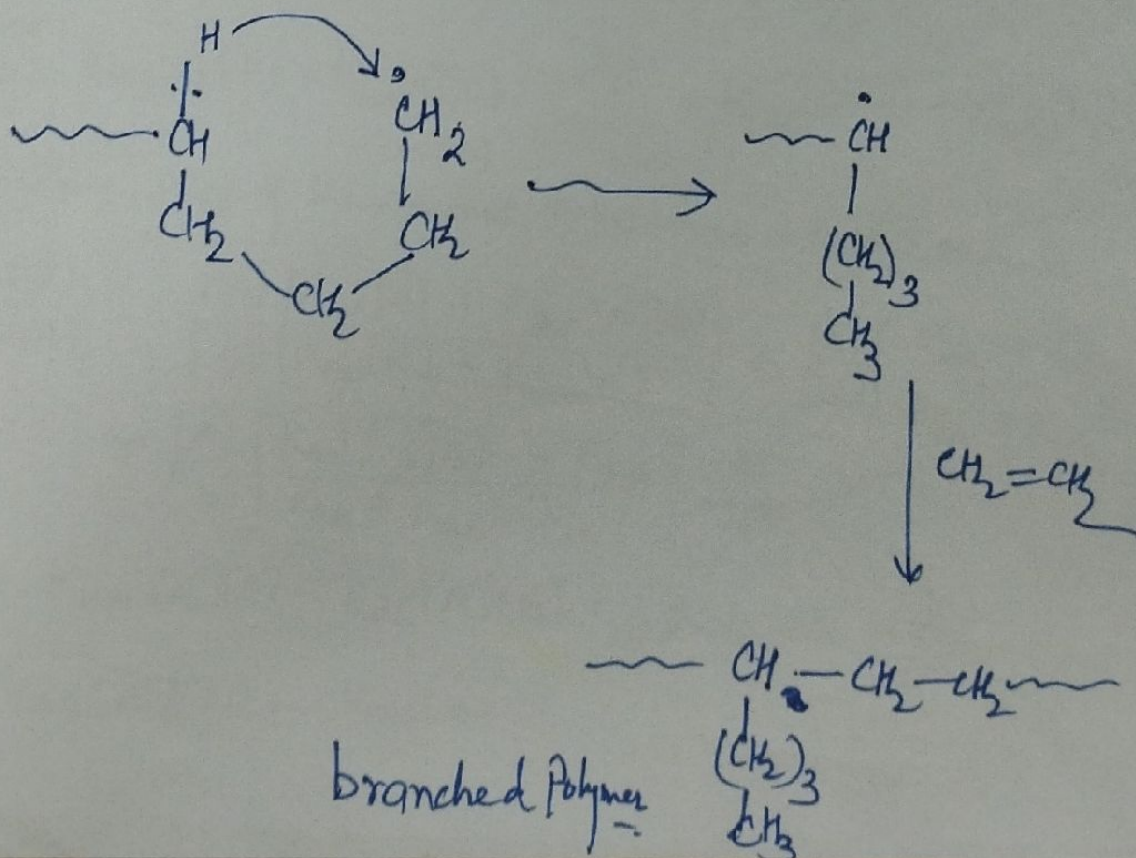 H
•CH2 •CH
CH
CH2 CH2 (CH2)3
CH2
CH3
CH2=CH2
CH — CH2 — CH2
(CH2)3
branched Polymer
CH3